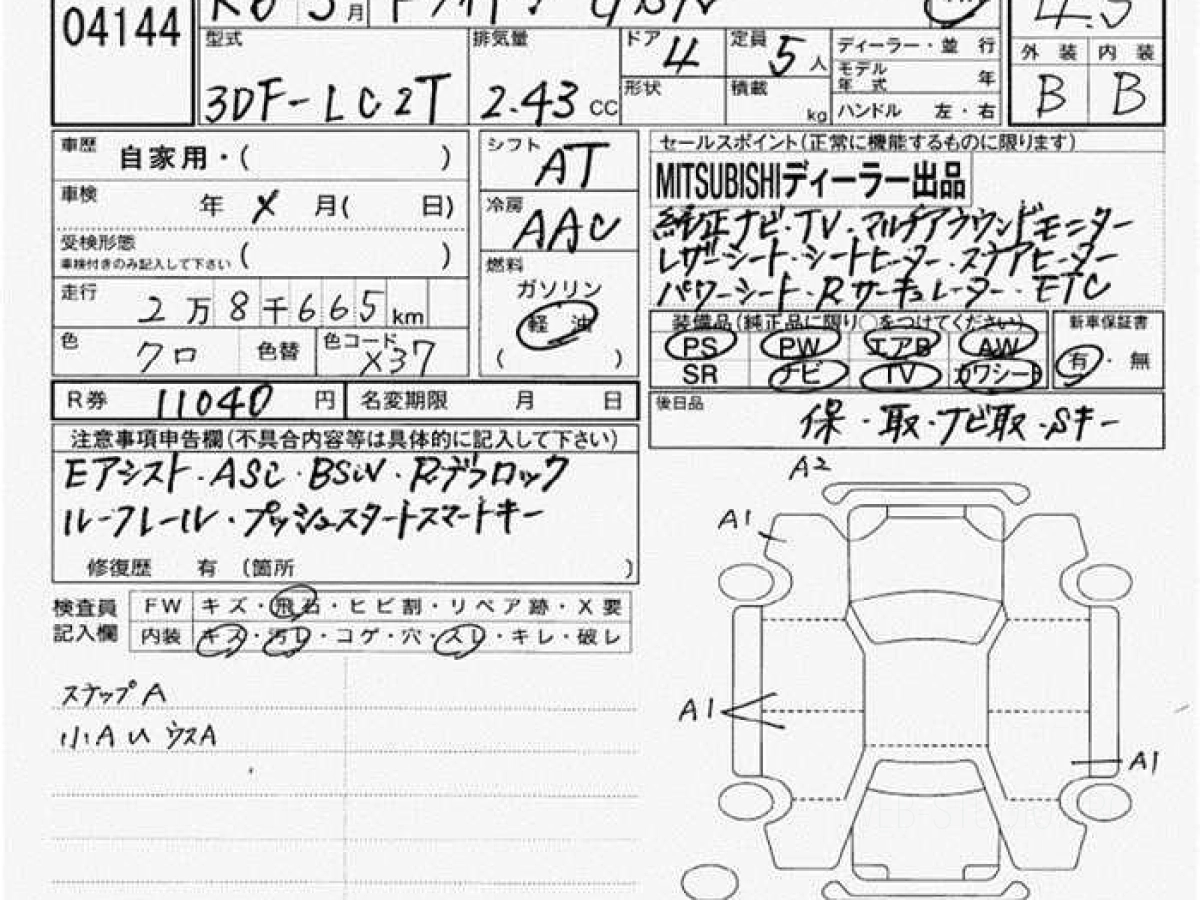 04144
月
4.5
型式 排気量 ドア 4 定員 5 人 ディーラー・並 行
モデル年式 年
外 装 内 装
3DF-LC2T 2.43 CC 形状 積載 kg ハンドル 左・右 B B
車歴 自家用・( )
車検 年 X 月( 日)
受検形態
車検付きのみ記入して下さい ( )
走行 2 万 8 千 6 6 5 km
色 クロ 色替 色コード X37
シフト AT
冷房 AAC
燃料
ガソリン
軽 油
( )
セールスポイント(正常に機能するものに限ります)
MITSUBISHIディーラー出品
純正ナビ・TV・マルチアラウンドモニター
レザーシート・シートヒーター・ステアヒーター
パワーシート・Rサーキュレーター・ETC
装備品(純正品に限り○をつけてください)
PS PW エアB AW
SR ナビ TV カワシート
新車保証書
有・無
R券 11040 円 名変期限 月 日
後日品 保・取・ナビ取・Sキー
注意事項申告欄(不具合内容等は具体的に記入して下さい)
Eアシスト・ASC・BSW・Rデフロック
ルーフレール・プッシュスタートスマートキー
修復歴 有 (箇所 )
検査員記入欄
FW キズ・飛石・ヒビ割・リペア跡・X要
内装 キズ・汚レ・コゲ・穴・スレ・キレ・破レ
ステップA
小A ウスA
A2
A1
A1
A1